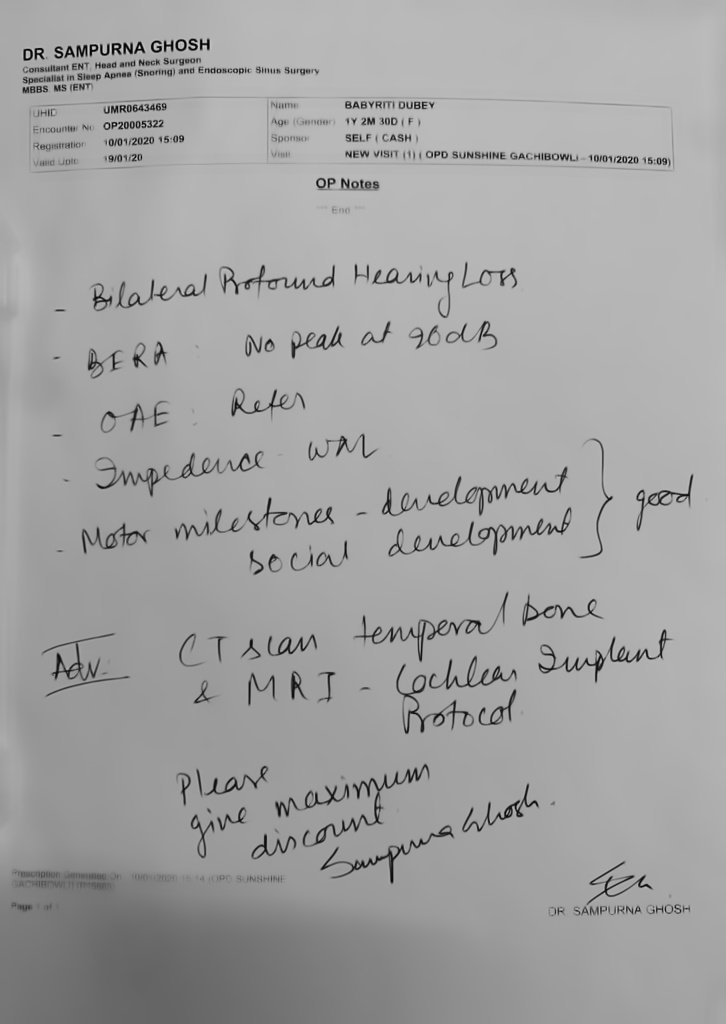 DR. SAMPURNA GHOSH
Consultant ENT, Head and Neck Surgeon
Specialist in Sleep Apnea (Snoring) and Endoscopic Sinus Surgery
MBBS, MS (ENT)
UHID UMR0643469 Name BABYRITI DUBEY
Encounter No OP20005322 Age (Gender) 1Y 2M 30D ( F )
Registration 10/01/2020 15:09 Sponsor SELF ( CASH )
Valid Upto 19/01/20 Visit NEW VISIT (1) ( OPD SUNSHINE GACHIBOWLI - 10/01/2020 15:09)
OP Notes
*** End ***
- Bilateral Profound Hearing Loss
- BERA : No peak at 90dB
- OAE : Refer
- Impedence WNL
- Motor milestones - development
social development } good
Adv. CT scan temperal bone
& MRI - Cochlear Implant
Protocol.
Please
give maximum
discount
Sampurna Ghosh.
Prescription Generated On 10/01/2020 15:14 (OPD SUNSHINE
Page 1 of 1
DR. SAMPURNA GHOSH